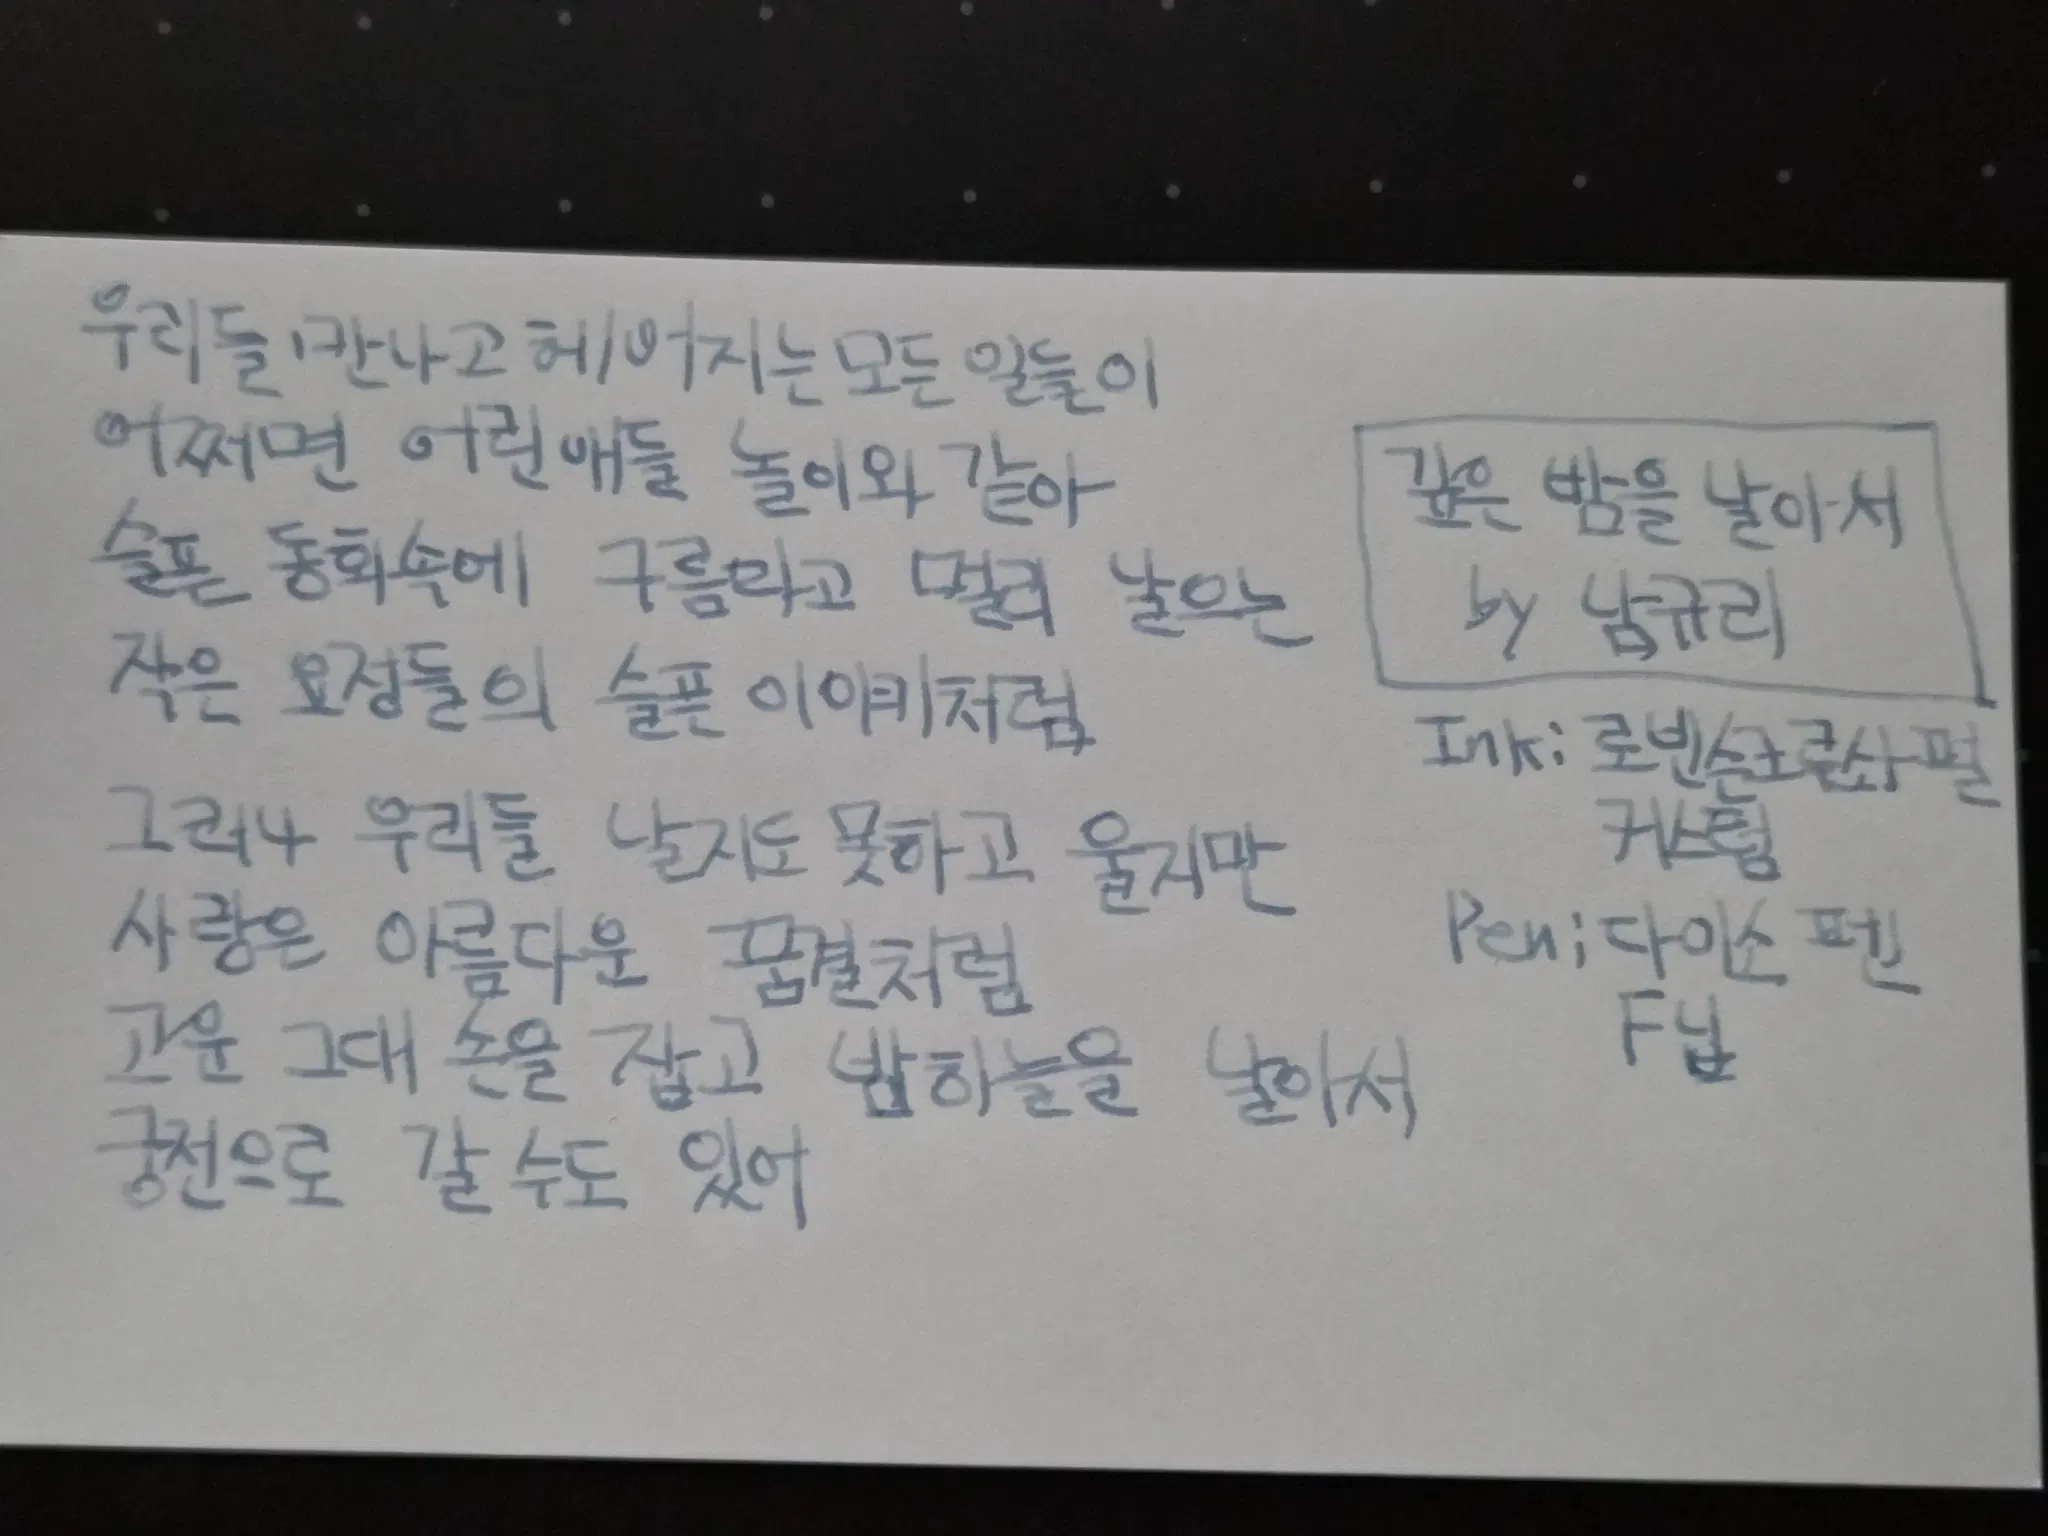 우리들 만나고 헤어지는 모든 일들이
어쩌면 어린애들 놀이와 같아
슬픈 동화속에 구름타고 멀리 날으는
작은 요정들의 슬픈 이야기처럼
그러나 우리들 날지도 못하고 울지만
사랑은 아름다운 꿈결처럼
고운 그대 손을 잡고 밤하늘을 날아서
궁전으로 갈 수도 있어
깊은 밤을 날아서
by 남규리
Ink: 로빈슨크루소 펄
커스텀
Pen: 다이소 펜
F닙